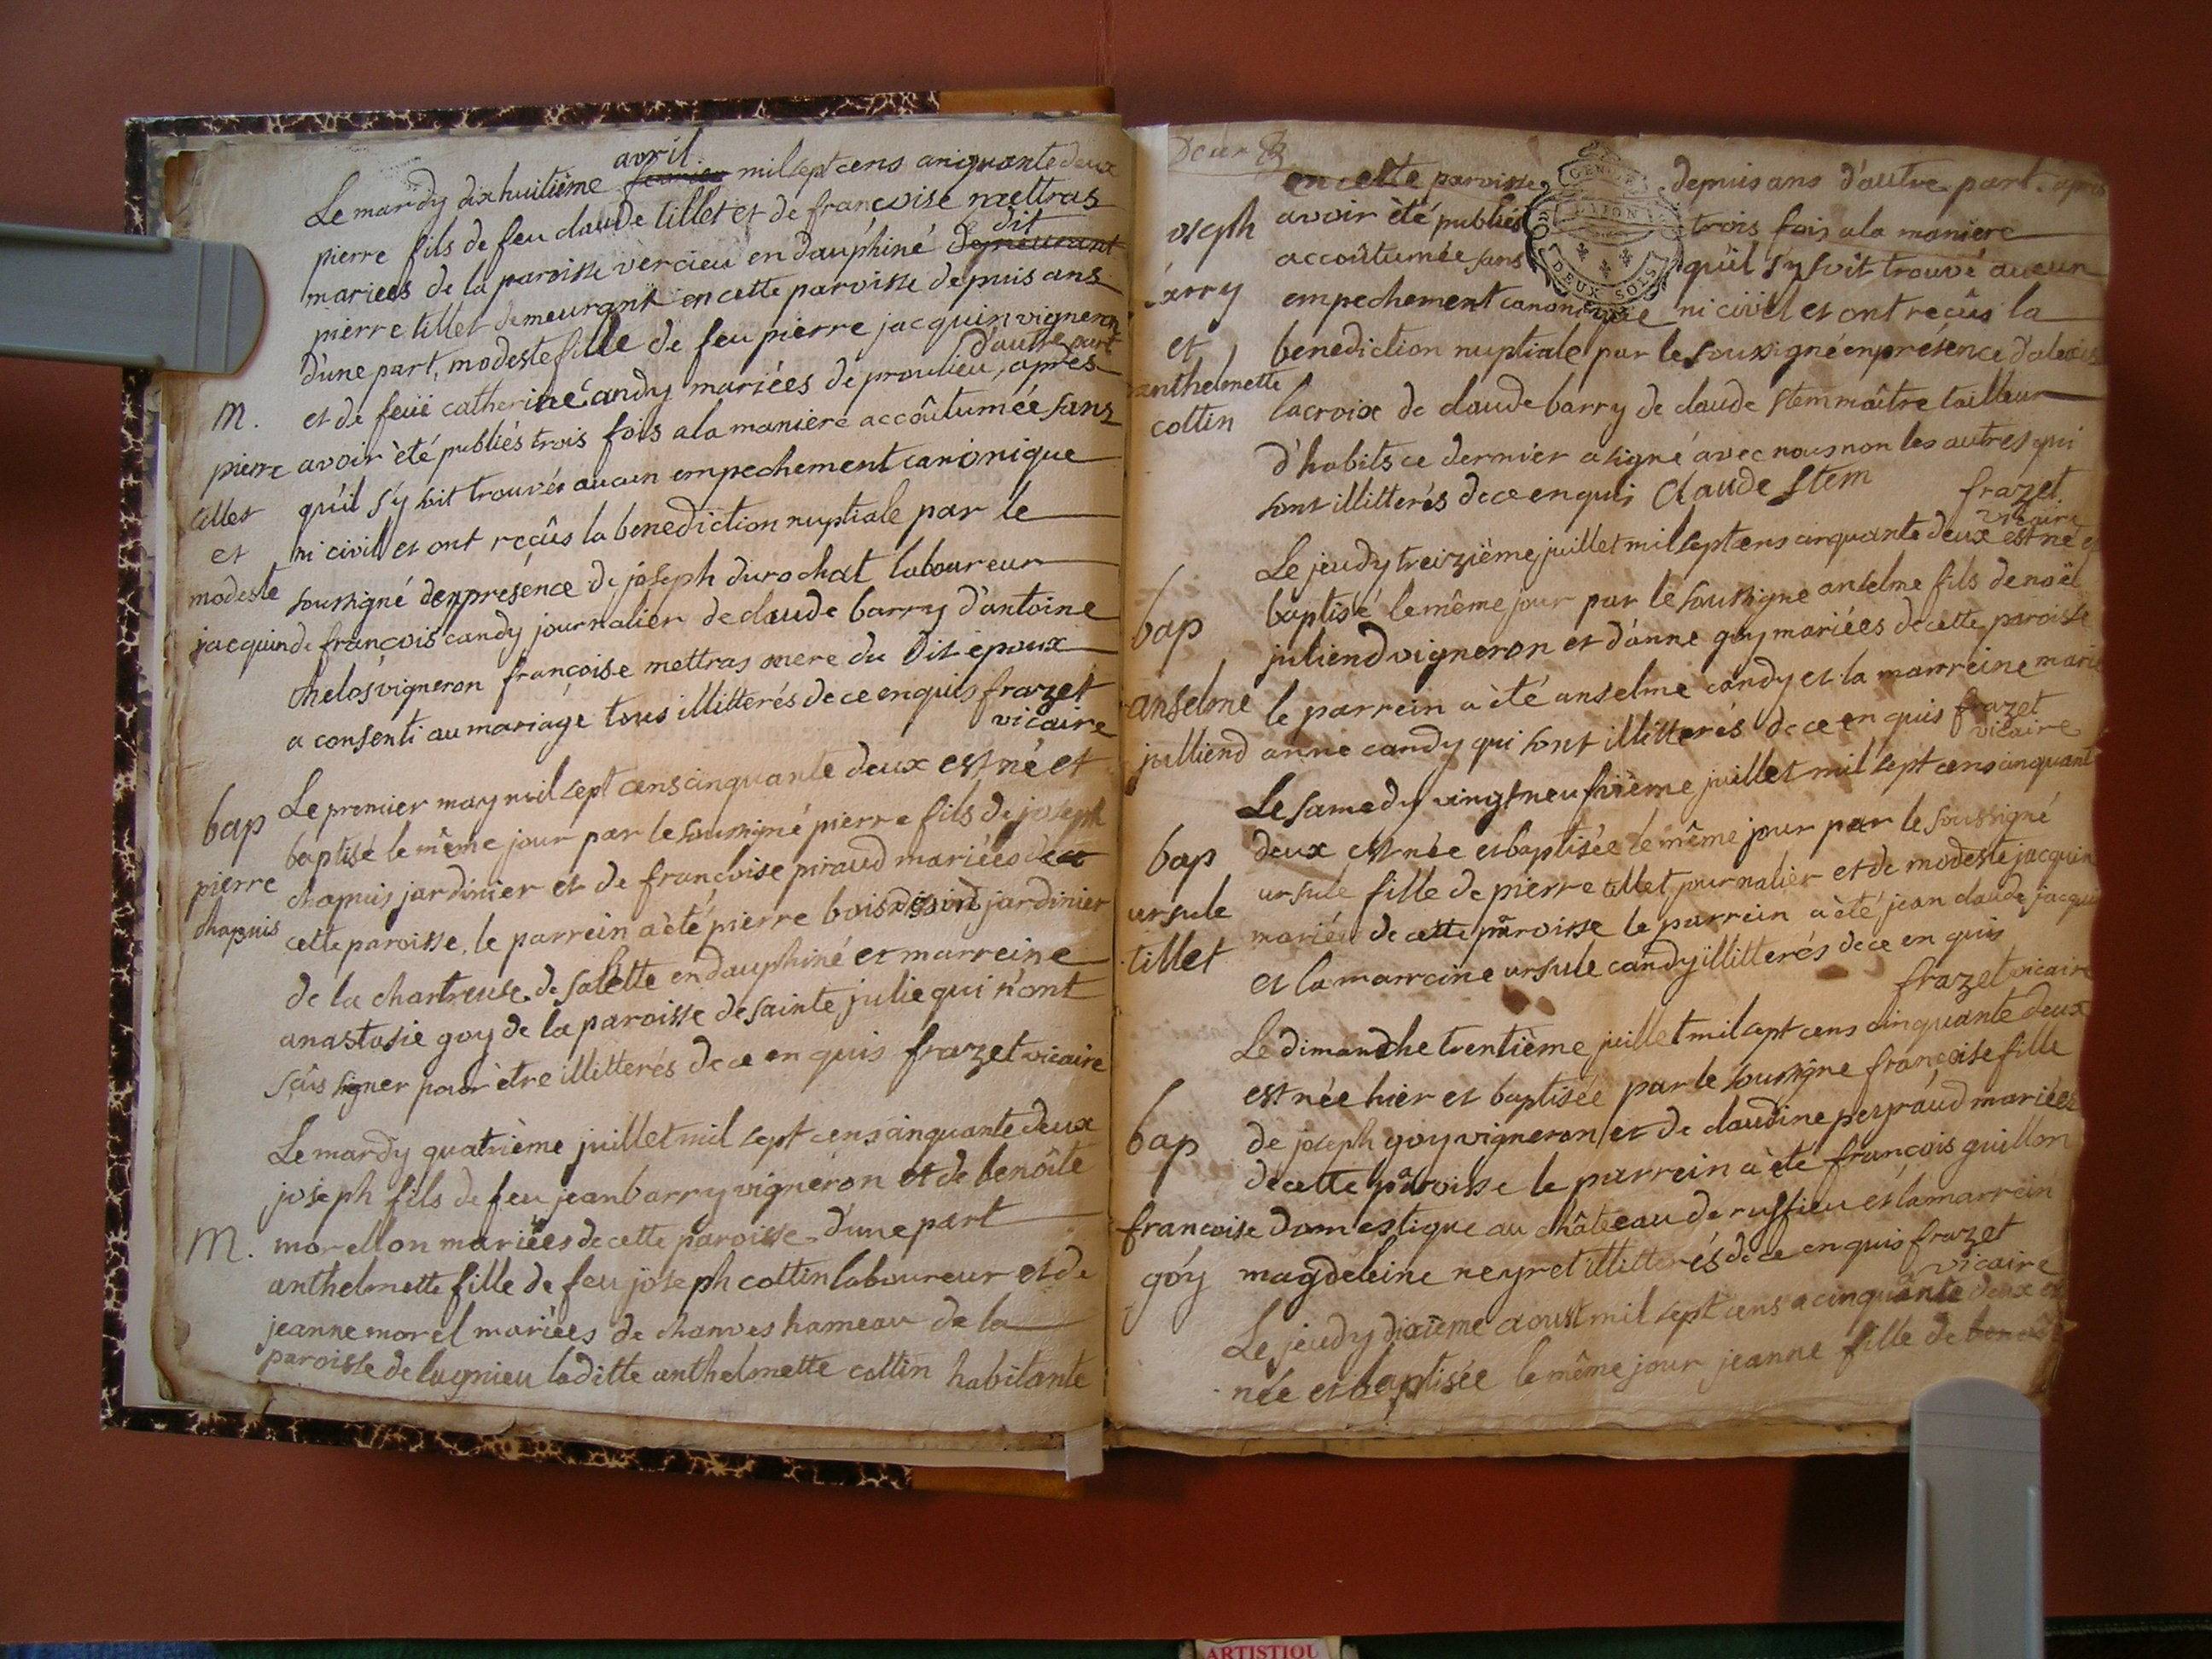 avril
Le mardy dix huitième fevrier mil sept cens cinquante deux
pierre fils de feu claude tillet et de francoise mettras
dit
mariees de la paroisse vercieu en dauphiné demeurant
pierre tillet demeurant en cette paroisse depuis ans
d'une part, modeste fille de feu pierre jacquin vigneron
d'autre part
et de feüe catherine candy mariées de proulieu, après
M.
avoir èté publiés trois fois a la maniere accoûtumée sans
pierre
qu'il s'y soit trouvés aucun empechement canonique
tillet
ni civil et ont reçûs la benediction nuptiale par le
et
soussigné den présence de joseph durochat laboureur
modeste
de françois candy journalier de claude barry d'antoine
jacquin
chelos vigneron françoise mettras mere du dit epoux
a consenti au mariage tous illitterés de ce enquis frazet
vicaire
Le premier may mil sept cens cinquante deux est né et
bap
baptisé le même jour par le soussigné pierre fils de joseph
pierre
chapuis jardinier et de francoise piraud mariées de
chapuis
cette paroisse, le parrein a èté pierre jardinier
de la chartreuse de salette en dauphiné et marreine
anastasie goy de la paroisse de sainte julie qui n'ont
sçûs signer pour ètre illitterés de ce en quis frazet vicaire
Le mardy quatrième juillet mil sept cens cinquante deux
joseph fils de feu jean barry vigneron et de benôite
M.
morellon mariées de cette paroisse d'une part
anthelmette fille de feu joseph cottin laboureur et de
jeanne morel mariées de chanves hameau de la
paroisse de lagnieu laditte anthelmette cottin habitante
en cette paroisse depuis ans d'autre part après
GEN DE DIJON
DEUX SOLS
oseph
avoir èté publiés trois fois a la maniere
accoûtumée sans qu'il s'y soit trouvé aucun
arry
empechement canonique ni civil et ont reçûs la
et
benediction nuptiale par le soussigné en présence d'alexis
anthelmette
lacroix de claude barry de claude stem maître tailleur
cottin
d'habits ce dernier a signé avec nous non les autres qui
sont illitterés de ce enquis Claude stem frazet
vicaire
Le jeudy treizième juillet mil sept cens cinquante deux est né et
baptisé le même jour par le soussigne anselme fils de noël
bap
juliend vigneron et d'anne goy mariées de cette paroisse
anselme
le parrein a èté anselme candy et la marreine marie
julliend
anne candy qui sont illitterés de ce en quis frazet
vicaire
Le samedy vingt neufvième juillet mil sept cens cinquante
bap
deux est née et baptisée le même jour par le soussigné
ursule
ursule fille de pierre tillet journalier et de modeste jacquin
tillet
mariées de cette paroisse le parrein a èté jean claude jacquin
et la marreine ursule candy illitterés de ce en quis
frazet vicaire
Le dimandhe trentième juillet mil sept cens cinquante deux
est née hier et baptisée par le soussigne françoise fille
bap
de joseph goy vigneron et de claudine peyraud mariées
de cette paroisse le parrein a èté françois guillon
francoise
domestique au château de ruffieu et la marrein
goy
magdeleine neyret illitterés de ce enquis frazet
vicaire
Le jeudy dixième aoust mil sept cens cinquante deux est
née et baptisée le même jour jeanne fille de
ARTISTIQU